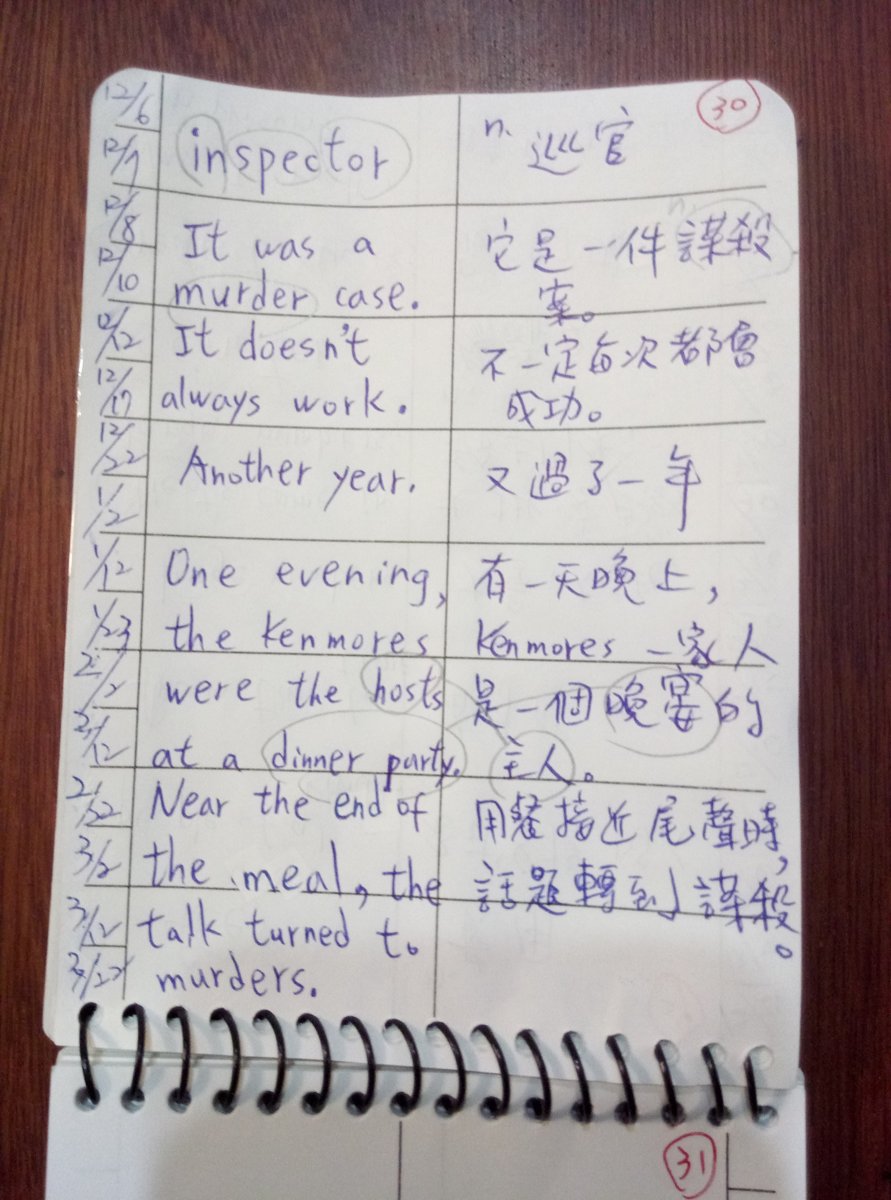 30
12/6
12/7
inspector
n. 巡官
12/8
12/10
It was a
murder case.
n.
它是一件謀殺
案。
12/12
12/17
It doesn't
always work.
不一定每次都會
成功。
12/22
1/2
Another year.
又過了一年
1/12
1/23
2/2
2/12
One evening,
the Kenmores
were the hosts
at a dinner party.
有一天晚上,
Kenmores 一家人
是一個晚宴的
主人。
2/22
3/2
3/12
3/22
Near the end of
the meal, the
talk turned to
murders.
用餐接近尾聲時,
話題轉到謀殺。
31